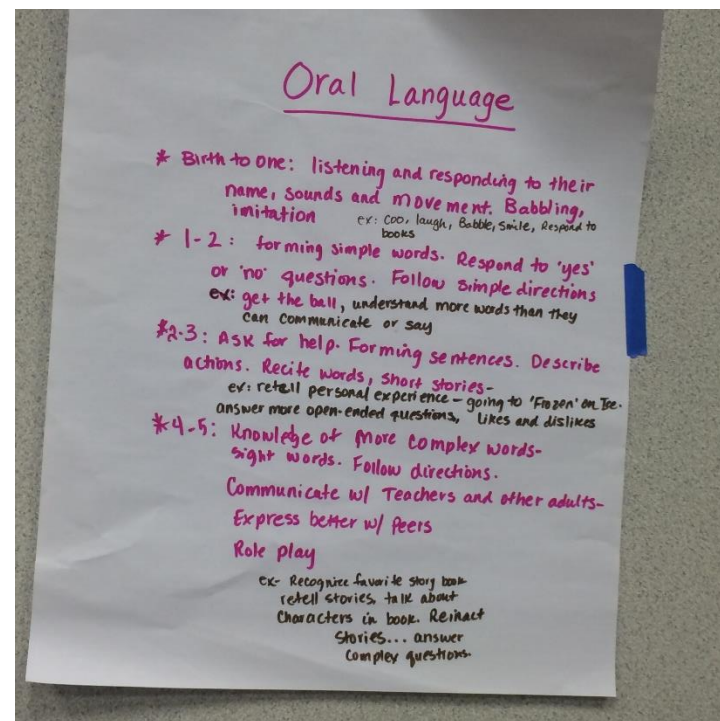 Oral Language
* Birth to one: listening and responding to their
name, sounds and movement. Babbling,
imitation
ex: coo, laugh, Babble, Smile, Respond to
books
* 1-2: forming simple words. Respond to 'yes'
or 'no' questions. Follow simple directions
ex: get the ball, understand more words than they
can communicate or say
*2-3: Ask for help. Forming sentences. Describe
actions. Recite words, short stories-
ex: retell personal experience - going to 'Frozen' on Ice.
answer more open-ended questions, Likes and dislikes
*4-5: Knowledge of more complex words-
sight words. Follow directions.
Communicate w/ Teachers and other adults-
Express better w/ Peers
Role play
ex- Recognize favorite story book
retell stories, talk about
Characters in book. Reinact
Stories... answer
Complex questions.